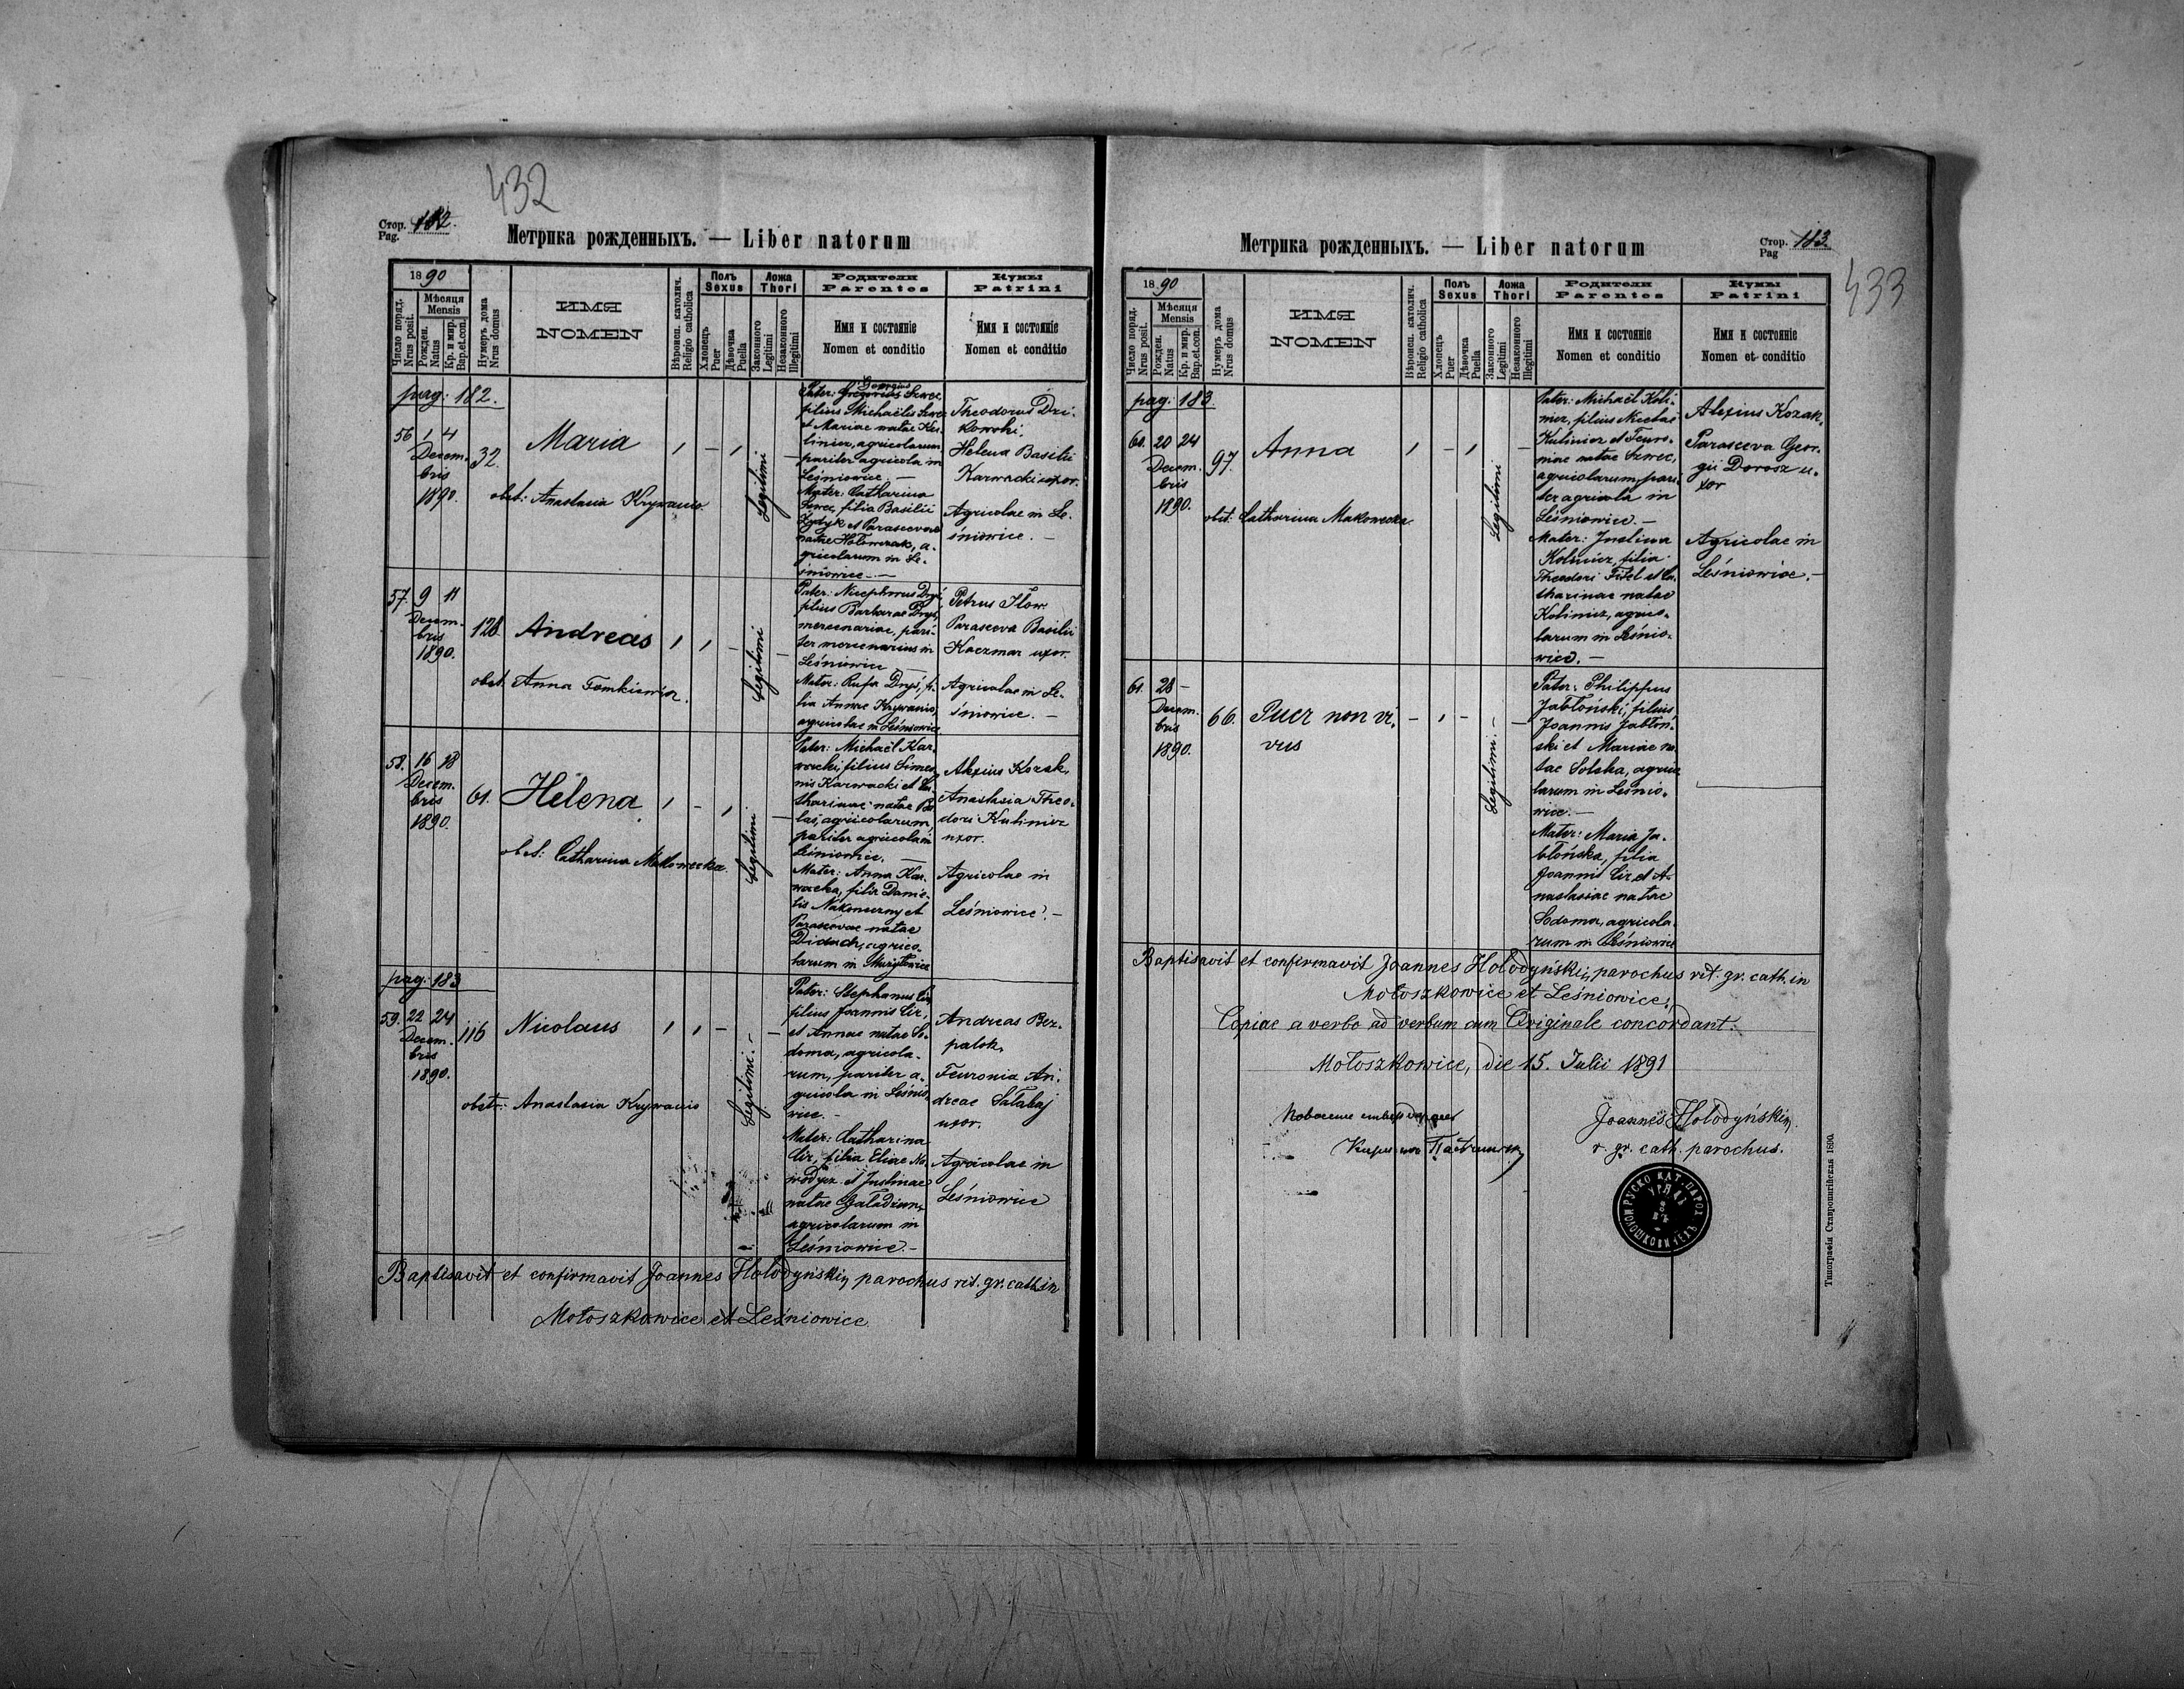 432
Стор. 182.
Pag.
Метрика рожденныхъ. — Liber natorum
1890
Число поряд.
Nrus posit.
Мѣсяця
Mensis
Рожден.
Natus
Кр. и мир.
Bap. et con.
Нумеръ дома
Nrus domus
ИМЯ
NOMEN
Вѣроисп. католич.
Religio catholica
Полъ
Sexus
Хлопецъ
Puer
Дѣвочка
Puella
Ложа
Thori
Законного
Legitimi
Незаконного
Illegitimi
Родители
Parentes
Имя и состоянїе
Nomen et conditio
Кумы
Patrini
Имя и состоянїе
Nomen et conditio
pag: 182.
56 1 4
Decem-
bris
1890.
32.
Maria
obst: Anastasia Krywanio.
Legitimi
Georgius
Pater: Gregorius Szwec,
filius Michaëlis Szwec
et Mariae natae Ku-
linicz, agricolarum
pariter agricola in
Leśniowice. —
Mater: Catharina
Szwec, filia Basilii
et Parascevae
natae Hołowczak, a-
gricolarum in Le-
śniowice. —
Theodorus Dzi-
kowski,
Helena Basilii
Karwacki uxor.
Agricolae in Le-
śniowice. —
57. 9 11
Decem-
bris
1890.
128
Andreas
obst. Anna Tomkiewicz.
Legitimi
Pater: Nicephorus Dryś,
filius Barbarae Dryś,
mercenariae, pari-
ter mercenarius in
Leśniowice —
Mater: Rufa Dryś, fi-
lia Annae Krywanio,
agricolae in Leśniowice
Petrus Ilow.
Parasceva Basilii
Kaczmar uxor.
Agricolae in Le-
śniowice. —
58. 16 18
Decem-
bris
1890.
61.
Helena
obst: Catharina Makowecka.
Legitimi
Pater: Michaël Kar-
wacki, filius Simeo-
nis Karwacki et Ca-
tharinae natae Ba-
las, agricolarum,
pariter agricola in
Leśniowice. —
Mater: Anna Kar-
wacka, filia Danie-
lis Nakoneczny et
Parascevae natae
Diduch, agrico-
larum in
Alexius Kozak,
Anastasia Theo-
dori Kulinicz
uxor.
Agricolae in
Leśniowice. —
pag: 183
59. 22 24
Decem-
bris
1890.
116
Nicolaus
obst.: Anastasia Krywanio
Legitimi. -
Pater: Stephanus Cir,
filius Joannis Cir,
et Annae natae So-
doma, agricola-
rum, pariter a-
gricola in Leśnio-
wice. -
Mater: Catharina
Cir, filia Eliae
et Justinae
natae
agricolarum in
Leśniowice. -
Andreas Bez-
palok,
Feuronia An-
dreae Sałabaj
uxor.
Agricolae in
Leśniowice
Baptisavit et confirmavit Joannes Hołodyńskiy parochus rit. gr. cath. in
Mołoszkowice et Leśniowice
Метрика рожденныхъ. — Liber natorum
Стор. 183.
Pag
433
1890
Число поряд.
Nrus posit.
Мѣсяця
Mensis
Рожден.
Natus
Кр. и мир.
Bap. et con.
Нумеръ дома
Nrus domus
ИМЯ
NOMEN
Вѣроисп. католич.
Religio catholica
Полъ
Sexus
Хлопецъ
Puer
Дѣвочка
Puella
Ложа
Thori
Законного
Legitimi
Незаконного
Illegitimi
Родители
Parentes
Имя и состоянїе
Nomen et conditio
Кумы
Patrini
Имя и состоянїе
Nomen et conditio
pag: 183.
60. 20 24
Decem-
bris
1890.
97.
Anna
obst: Catharina Makowecka.
Legitimi
Pater: Michaël Koli-
nicz, filius Nicolai
Kulinicz et Feuro-
niae natae Szwec,
agricolarum, pari-
ter agricola in
Leśniowice. —
Mater: Justina
Kolinicz, filia
Theodori Fitel et Ca-
tharinae natae
Kolinicz, agrico-
larum in Leśnio-
wice. —
Alexius Kozak,
Parasceva Geor-
gii Dorosz u-
xor
Agricolae in
Leśniowice. —
61. 28 -
Decem-
bris
1890.
66.
Puer non vi-
vus
Legitimi. -
Pater: Philippus
Jabłoński, filius
Joannis Jabłoń-
ski et Mariae na-
tae Solska, agrico-
larum in Leśnio-
wice. —
Mater: Maria Ja-
błońska, filia
Joannis Cir et A-
nastasiae natae
Sodoma, agricola-
rum in Leśniowice
Baptisavit et confirmavit Joannes Hołodyńskiy, parochus rit. gr. cath. in
Mołoszkowice et Leśniowice.
Copiae a verbo ad verbum cum Originale concordant.
Mołoszkowice, die 15. Julii 1891
Joannes Hołodyńskiy
r. gr. cath. parochus.
Типографія Ставропигійская 1890.